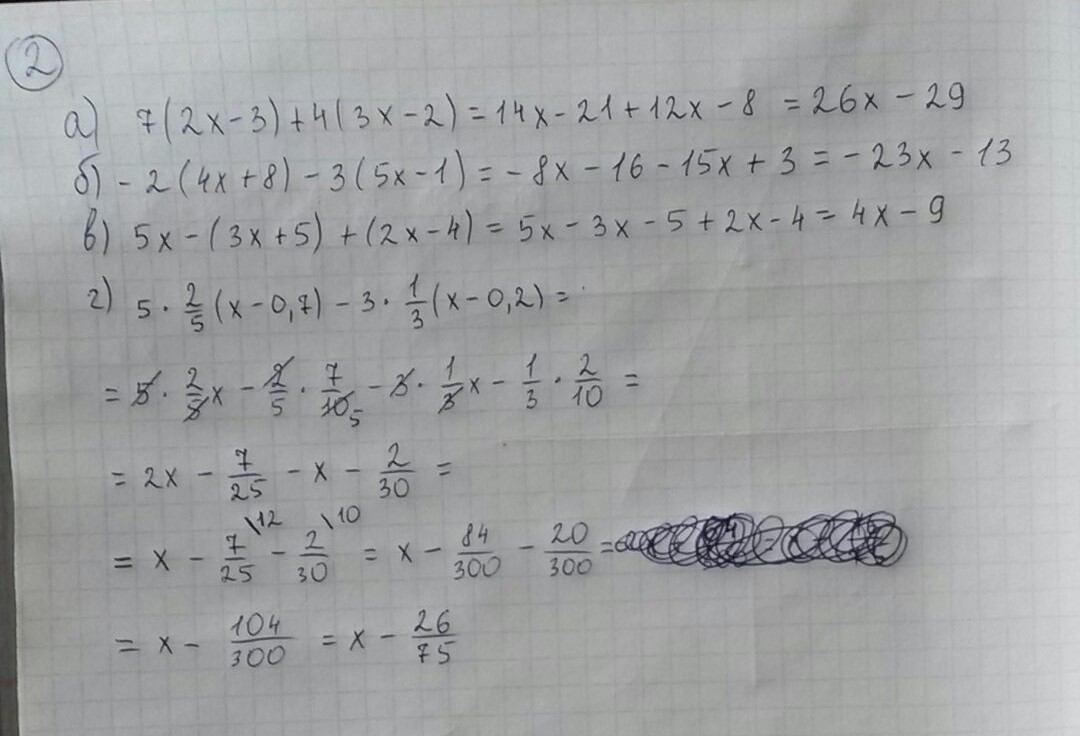 2
а) 7(2x-3)+4(3x-2)=14x-21+12x-8=26x-29
б) -2(4x+8)-3(5x-1)=-8x-16-15x+3=-23x-13
в) 5x-(3x+5)+(2x-4)=5x-3x-5+2x-4=4x-9
г) 5·2/5(x-0,7)-3·1/3(x-0,2)=
=5·2/5x-2/5·7/10 5-3·1/3x-1/3·2/10=
=2x-7/25-x-2/30=
=x-7/25\12-2/30\10=x-84/300-20/300=
=x-104/300=x-26/75